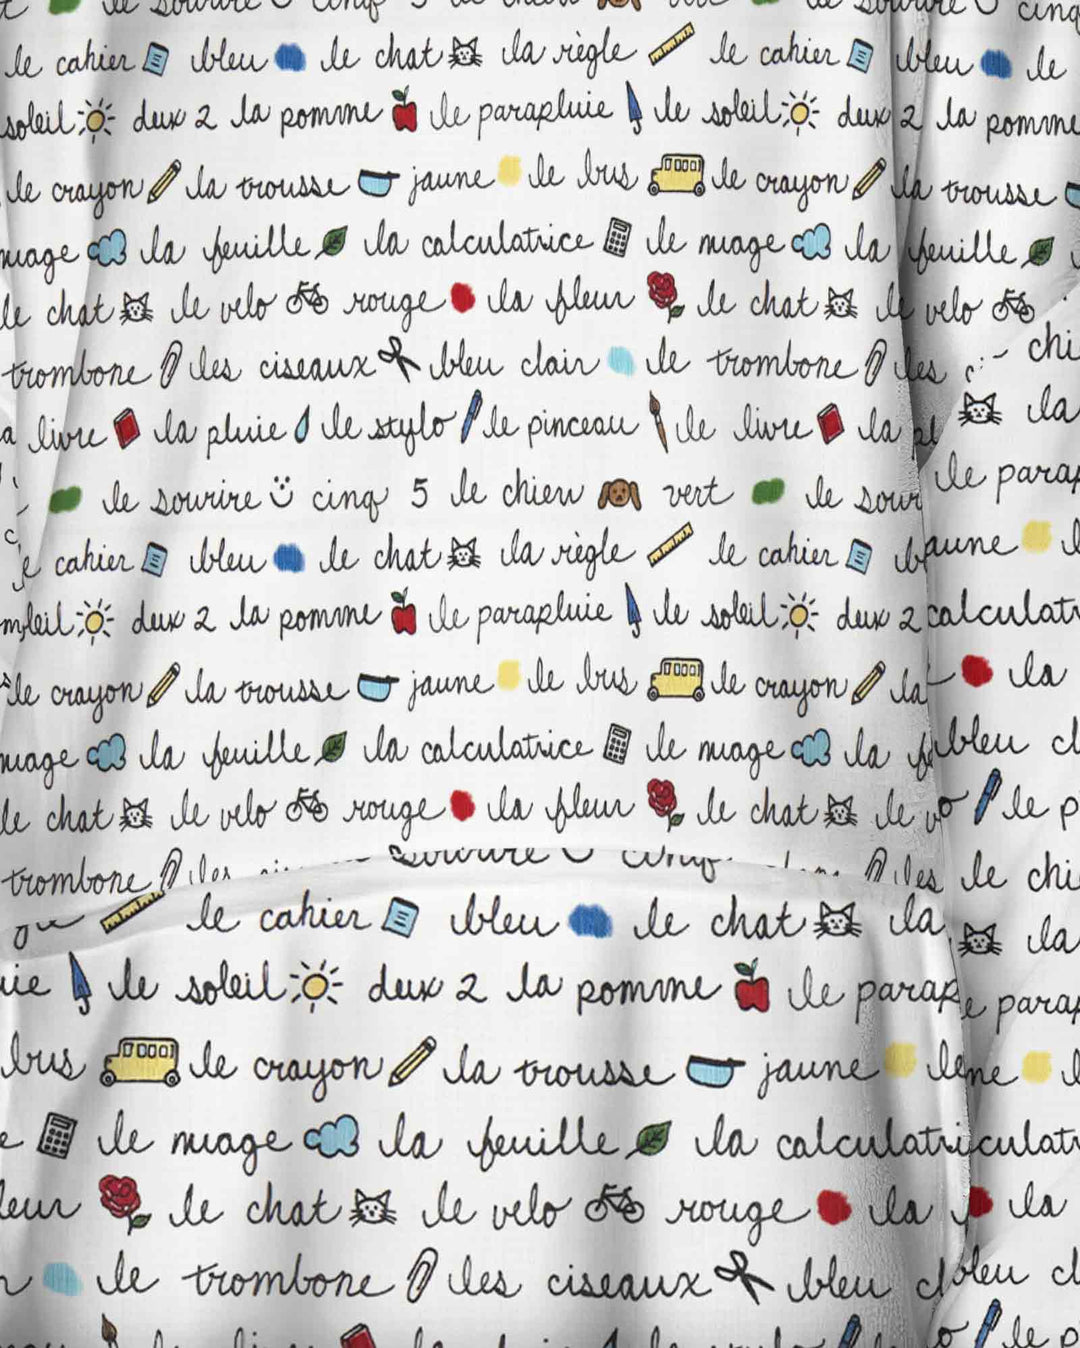 cinq 5 le chien vert le sourire cinq
le cahier bleu le chat la règle le cahier bleu le
soleil deux 2 la pomme le parapluie le soleil deux 2 la pomme
le crayon la trousse jaune le bus le crayon la trousse
nuage la feuille la calculatrice le nuage la feuille
le chat le velo rouge la fleur le chat le velo
trombone les ciseaux bleu clair le trombone les
livre la pluie le stylo le pinceau le livre la
le sourire cinq 5 le chien vert le
le cahier bleu le chat la règle le cahier
deux 2 la pomme le parapluie le soleil deux 2
le crayon la trousse jaune le bus le crayon la
nuage la feuille la calculatrice le nuage la
le chat le velo rouge la fleur le chat le
trombone les sourire cinq les
le cahier bleu le chat la
le soleil deux 2 la pomme le
bus le crayon la trousse jaune le
le nuage la feuille la
le chat le velo rouge la
le trombone les ciseaux bleu
la
le
la
bleu
le
le
la
la
bleu
le